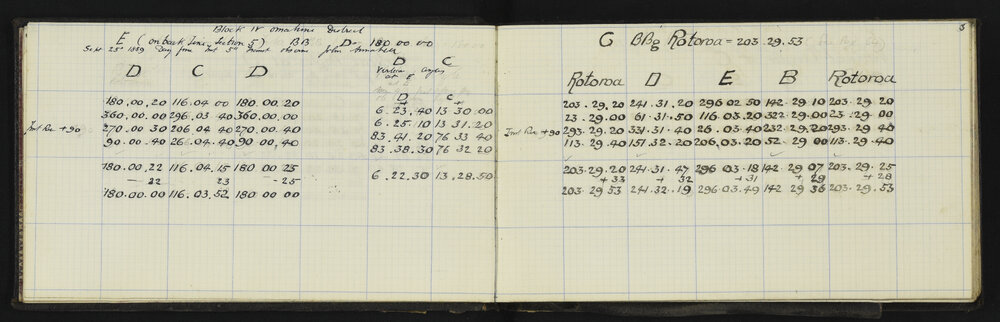 Block IV Omahine District
E (on back Line Section 5) BB D = 180 00 00
Sept 25th 1889 Day fine Inst 5" observer John Annabell
D C D
D C
Vertical Angles
at E
D C
180.00.20 116.04 00 180.00.20
6.23.40 13 30.00
360.00.00 296.03 40 360.00.00
6.25.10 13 31.20
Inst Rev +90 270.00 30 206 04 40 270.00.40
83.41.20 76 33 40
90.00.40 26.04.40 90 00.40
83.38.30 76 32 20
180.00.22 116.04.15 180 00 25
6.22.30 13.28.50
— 22 23 — 25
180.00.00 116.03.52 180 00 00
3
C BBg Rotoroa = 203.29.53
Rotoroa D E B Rotoroa
203.29.20 241.31.20 296 02 50 142.29 10 203.29.20
23.29.00 61.31.50 116 03.20 322.29.00 23.29 00
Inst Rev +90 293.29.20 331.31 40 26.03.40 232.29.20 293.29 40
113.29.40 151.32.20 206.03.20 52.29 00 113.29.40
203.29.20 241.31.47 296 03.18 142 29 07 203.29.25
+33 + 32 +31 + 29 + 28
203.29.53 241.32.19 296.03.49 142 29 36 203.29.53